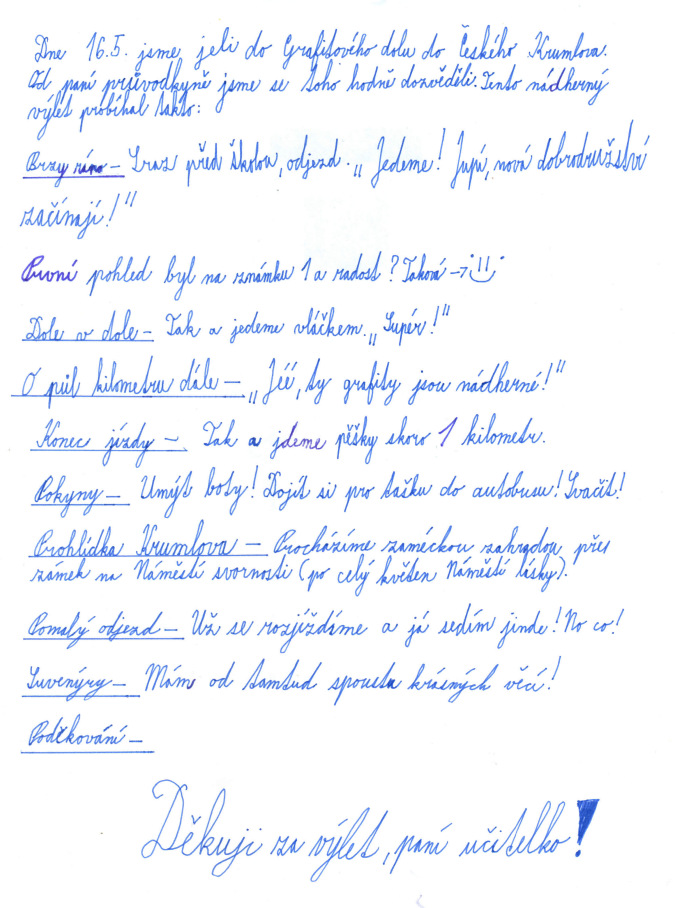 Dne 16.5. jsme jeli do Grafitového dolu do Českého Krumlova.
Od paní průvodkyně jsme se toho hodně dozvěděli. Tento nádherný
výlet probíhal takto:
Brzy ráno – Sraz před školou, odjezd. „Jedeme! Jupí, nová dobrodružství
začínají!"
První pohled byl na známku 1 a radost? Taková →
Dole v dole – Tak a jedeme vláčkem. „Supér!"
O půl kilometru dále – „Jéé, ty grafity jsou nádherné!"
Konec jízdy – Tak a jdeme pěšky skoro 1 kilometr.
Pokyny – Umýt boty! Dojít si pro tašku do autobusu! Svačit!
Prohlídka Krumlova – Procházíme zámeckou zahradou, přes
zámek na Náměstí svornosti (po celý květen Náměstí lásky).
Pomalý odjezd – Už se rozjíždíme a já sedím jinde! No co!
Suvenýry – Mám od tamtud spousta krásných věcí!
Poděkování –
Děkuji za výlet, paní učitelko!